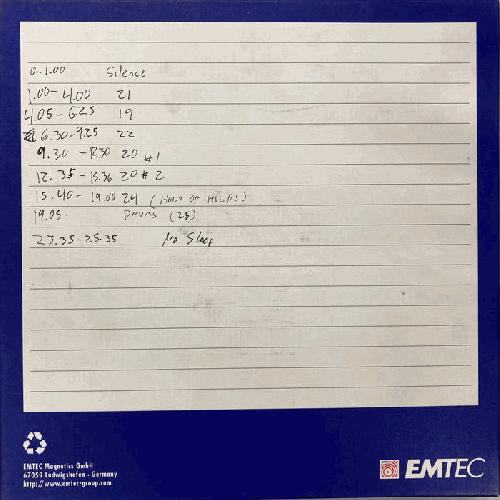 0-1.00 Silence
1.00-4.00 21
4.05-6.25 19
6.30-9.25 22
9.30 - 20 #1
12.35 - 20 #2
15.40- 19.00 24
19.05 (25)
25.35 No Sleep
EMTEC Magnetics GmbH
67059 Ludwigshafen - Germany
http://www.emtec-group.com
EMTEC